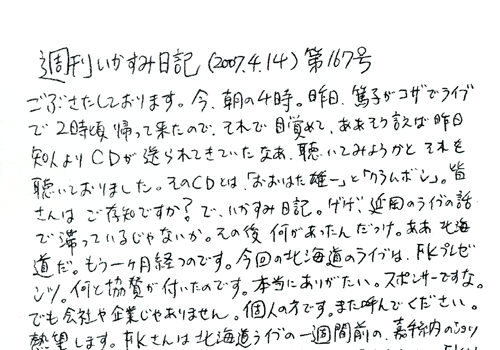 週刊いかすみ日記(2007.4.14)第167号
ごぶさたしております。今、朝の4時。昨日、篤子がコザでライブ
で2時頃帰って来たので、それで目覚めて、ああそう言えば昨日
知人よりCDが送られてきていたなあ、聴いてみようかとそれを
聴いておりました。そのCDとは、「おおはた雄一」と「クラムボン」。皆
さんはご存知ですか?で、いかすみ日記。ゲゲ、延岡のライブの話
で滞っているじゃないか。その後何があったんだっけ。ああ北海
道だ。もう一ヶ月経つのです。今回の北海道のライブは、F.Kプレゼ
ンツ。何と協賛が付いたのです。本当にありがたい。スポンサーですな。
でも会社や企業じゃありません。個人の方です。また呼んでください。
熱望します。F.Kさんは北海道ライブの一週間前の、嘉手納の